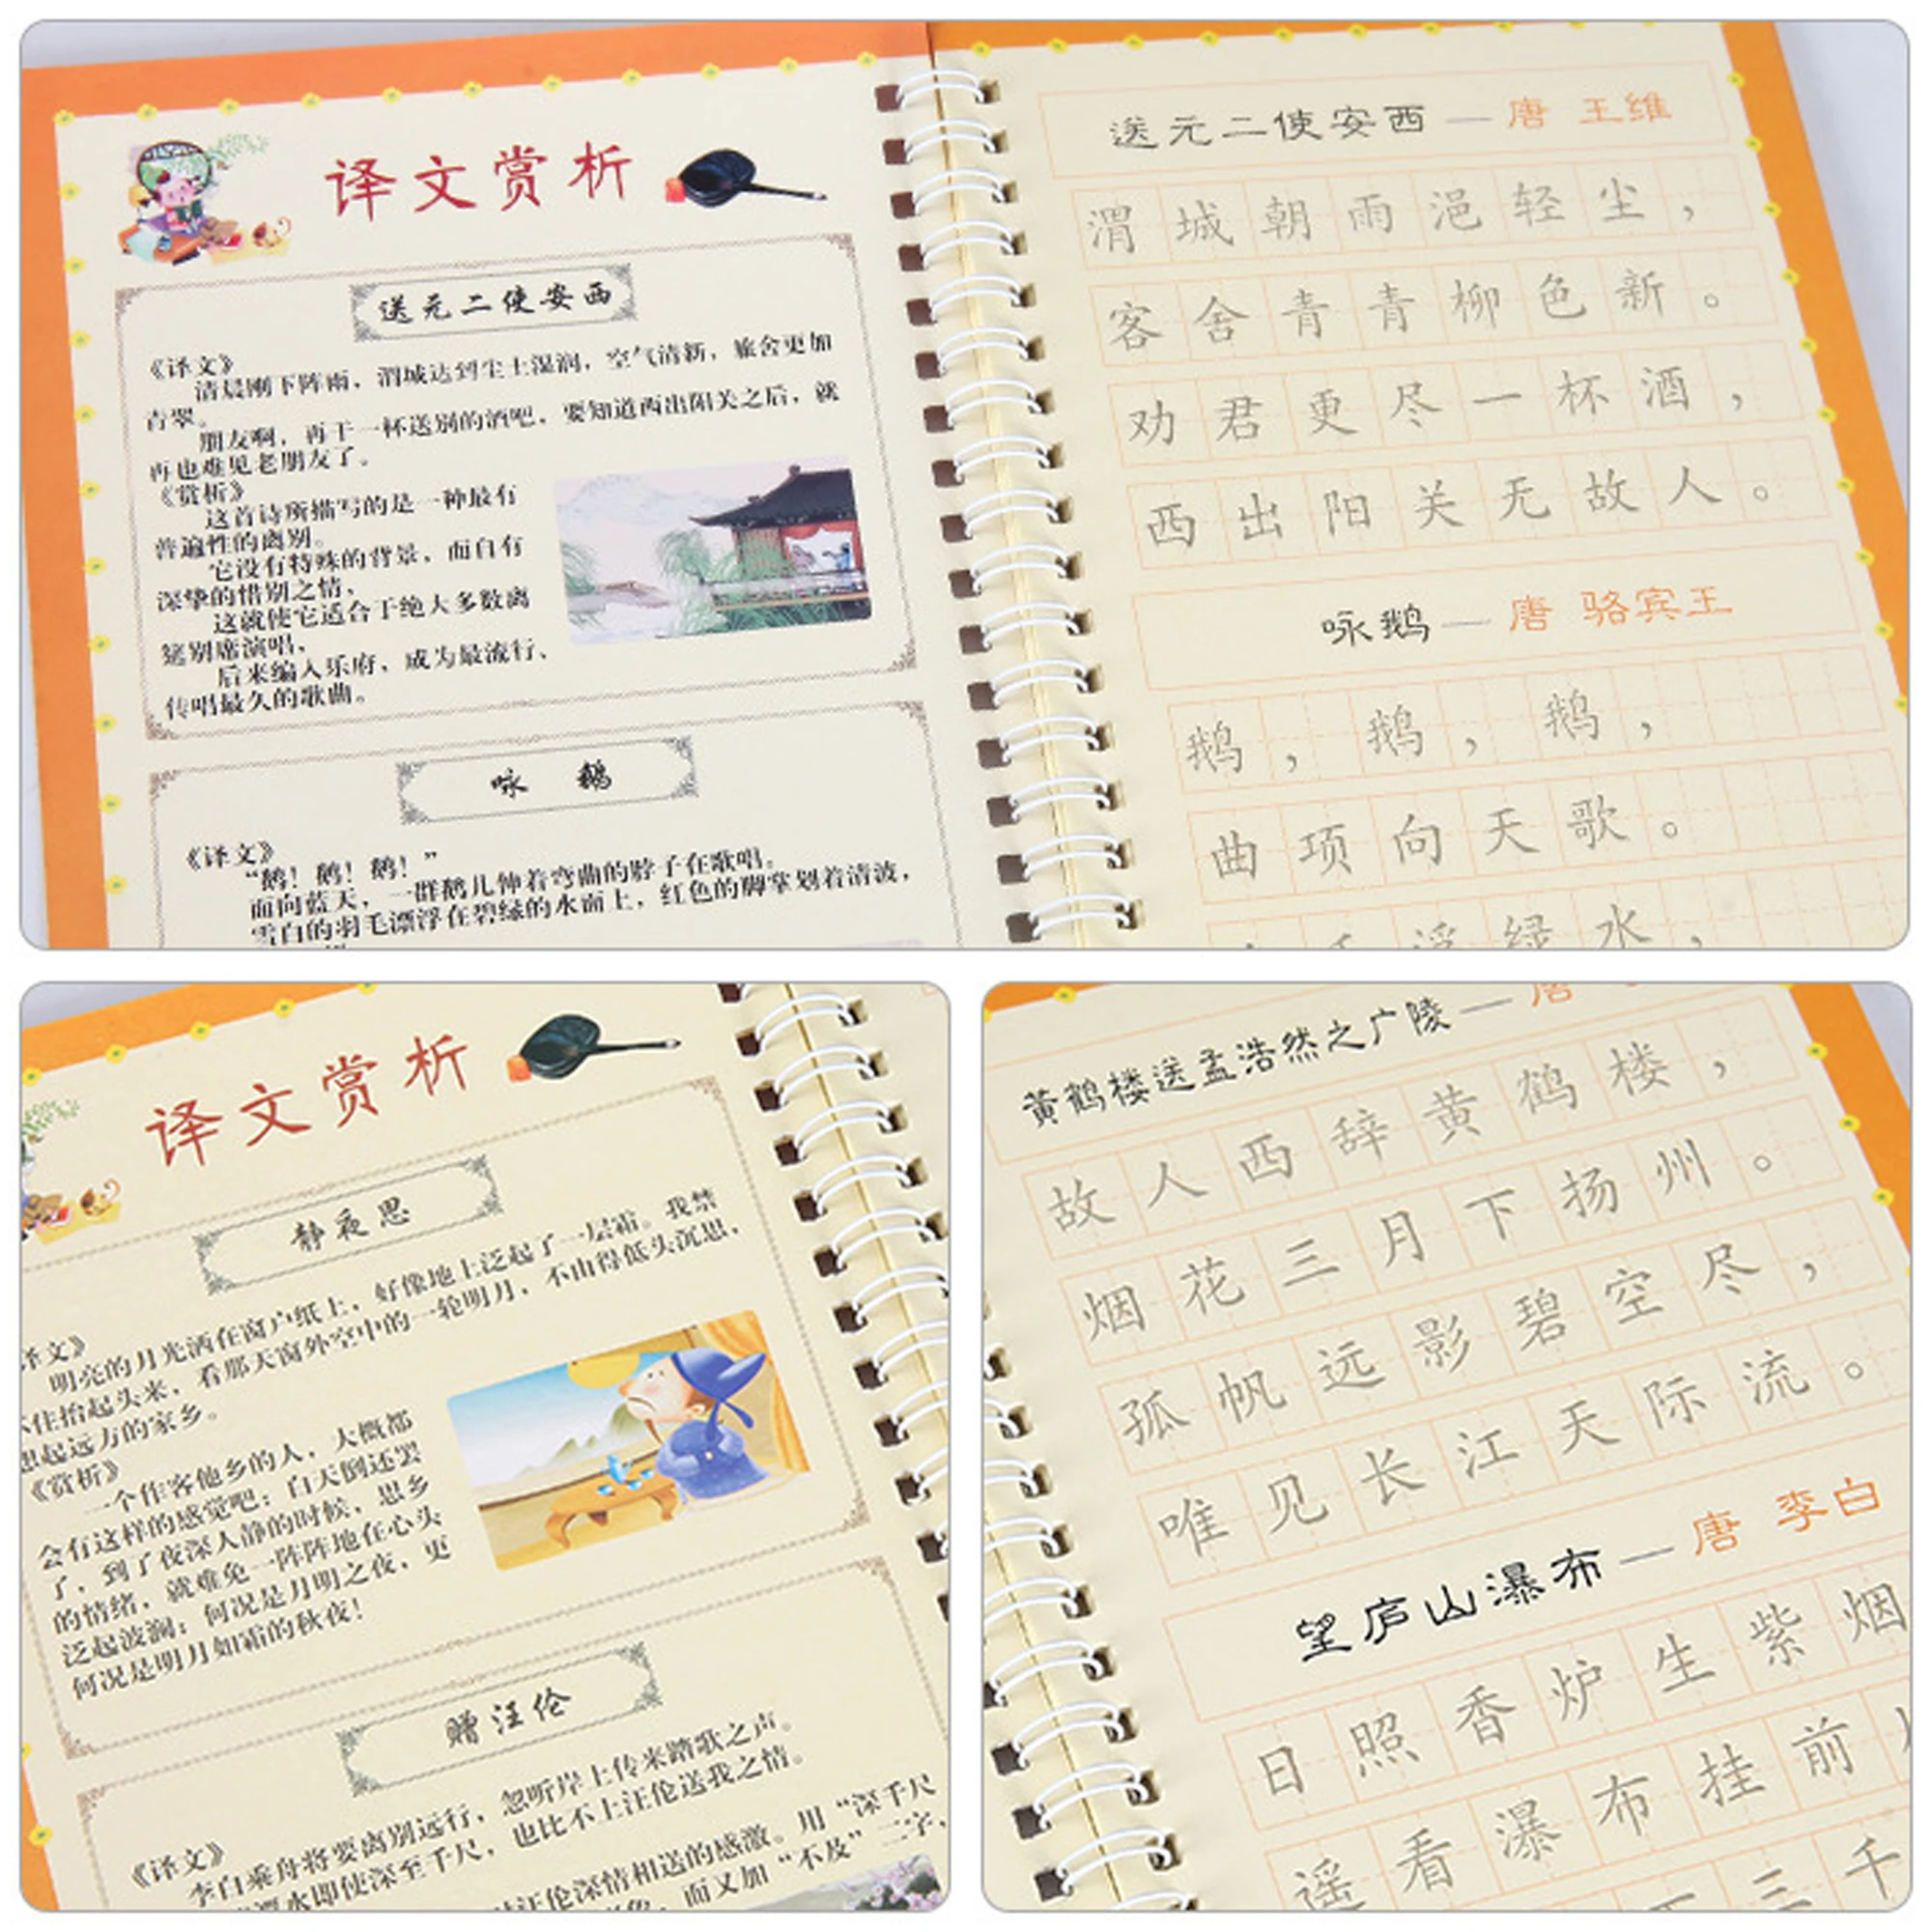 译文赏析
送元二使安西
《译文》
清晨刚下阵雨，渭城达到尘土湿润，空气清新，旅舍更加
青翠。
朋友啊，再干一杯送别的酒吧，要知道西出阳关之后，就
再也难见老朋友了。
《赏析》
这首诗所描写的是一种最有
普遍性的离别。
它没有特殊的背景，而自有
深挚的惜别之情，
这就使它适合于绝大多数离
筵别席演唱，
后来编入乐府，成为最流行、
传唱最久的歌曲。
咏 鹅
《译文》
“鹅！鹅！鹅！”
面向蓝天，一群鹅儿伸着弯曲的脖子在歌唱。
雪白的羽毛漂浮在碧绿的水面上，红色的脚掌划着清波，
送元二使安西 — 唐 王维
渭城朝雨浥轻尘，
客舍青青柳色新。
劝君更尽一杯酒，
西出阳关无故人。
咏鹅 — 唐 骆宾王
鹅，鹅，鹅，
曲项向天歌。
浮绿水，
译文赏析
静夜思
译文》
明亮的月光洒在窗户纸上，好像地上泛起了一层霜。我禁
不住抬起头来，看那天窗外空中的一轮明月，不由得低头沉思，
想起远方的家乡。
《赏析》
一个作客他乡的人，大概都
会有这样的感觉吧：白天倒还罢
了，到了夜深人静的时候，思乡
的情绪，就难免一阵阵地在心头
泛起波澜；何况是月明之夜，更
何况是明月如霜的秋夜！
赠汪伦
《译文》
李白乘舟将要离别远行，忽听岸上传来踏歌之声。
潭水即使深至千尺，也比不上汪伦送我之情。
汪伦深情相送的感激。用“深千尺
，而又加“不及”二字，
黄鹤楼送孟浩然之广陵 — 唐
故人西辞黄鹤楼，
烟花三月下扬州。
孤帆远影碧空尽，
唯见长江天际流。
望庐山瀑布 — 唐 李白
日照香炉生紫烟
遥看瀑布挂前
三千